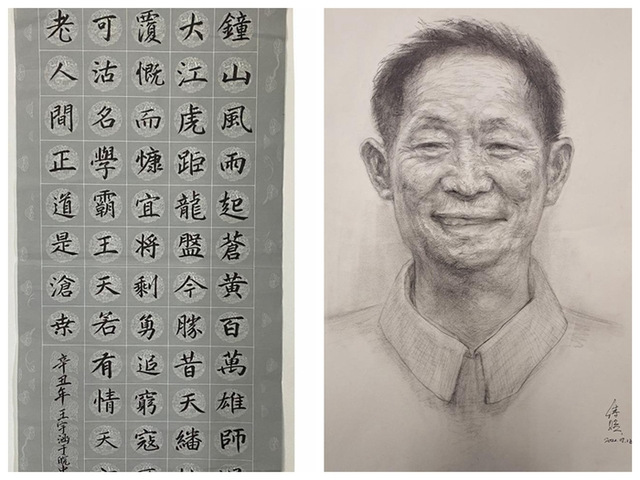 鐘山風雨起蒼黃百萬雄師
大江虎距龍盤今勝昔天繙
覆慨而慷宜將剩勇追窮寇
可沽名學霸王天若有情天
老人間正道是滄桒
辛丑年 王宇涵于皖